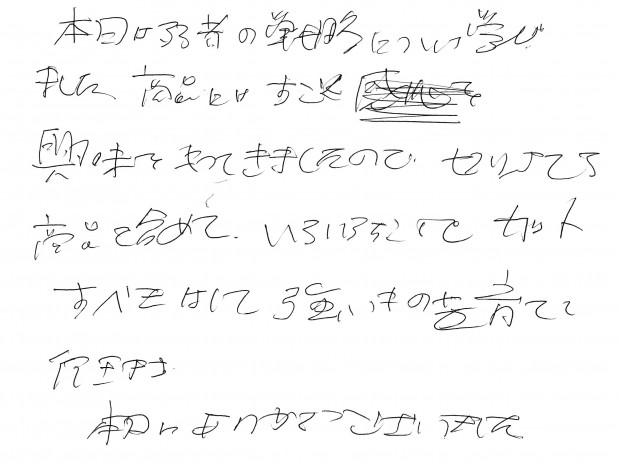 本日は弱者の戦略について学び
ました 商品にはすごく
興味をもってきましたので、セリ
商品を含めて、いろいろ カット
すべき 強いもの 育てて
行きます
本日はありがとうございました